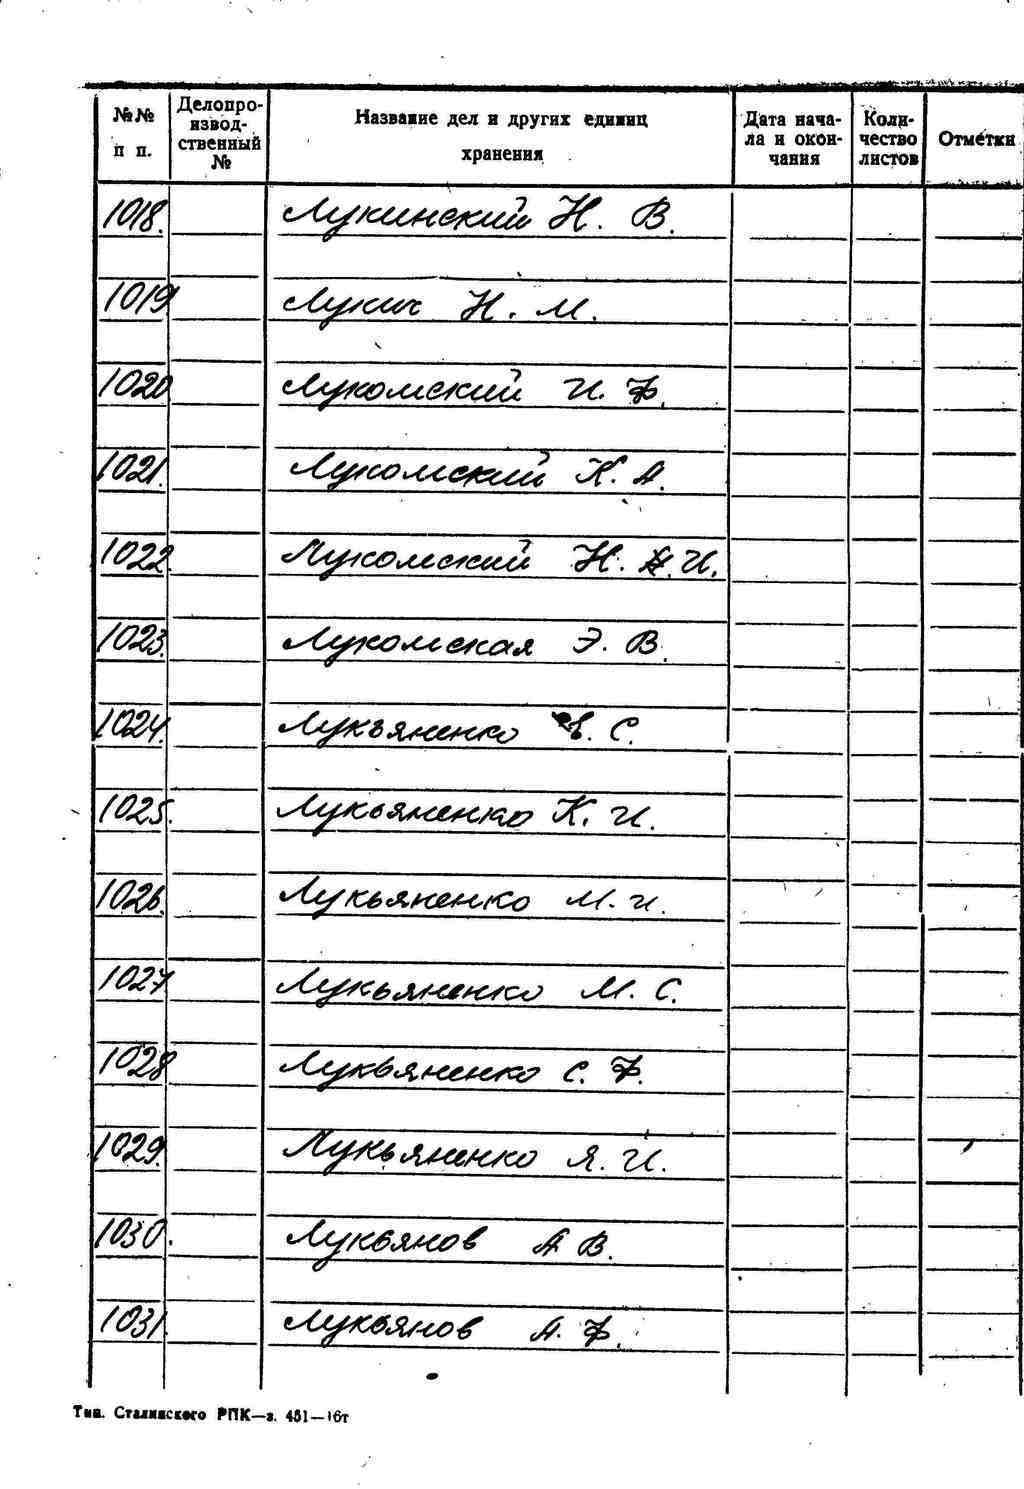 №№ п п. Делопроизвод-ственный № Название дел и других единиц хранения Дата нача-ла и окон-чания Коли-чество листов Отметки
1018. Лукинский Н. В.
1019 Лукич Н. М.
1020 Лукомский И. Ф.
1021. Лукомский К. А.
1022. Лукомский Н. И.
1023. Лукомская Э. В.
1024. Лукьяненко С.
1025. Лукьяненко К. И.
1026. Лукьяненко М. И.
1027 Лукьяненко М. С.
1028 Лукьяненко С. Ф.
1029. Лукьяненко Я. И.
1030. Лукьянов А В.
1031 Лукьянов А. Ф.
Тип. Сталинского РПК—з. 451—16т